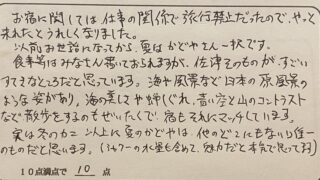 お宿に関しては仕事の関係で旅行禁止だったので、やっと
来れたとうれしくなりました。
以前お世話になってから、夏はかどやさん一択です。
食事等はみなさん書いておられますが、佐津そのものが、すごい
すてきなところだと思っています。海や風景など日本の原風景の
ような姿があり、海の美しさや蝉しぐれ、青い空と山のコントラスト
など散歩をするのもぜいたくで、宿もそれにマッチしています。
実は冬のカニ以上に夏のかどやは、他のどこにもない唯一
のものだと思います。(シャワーの水量も含めて、魅力だと本気で思ってます)
10点満点で 10 点